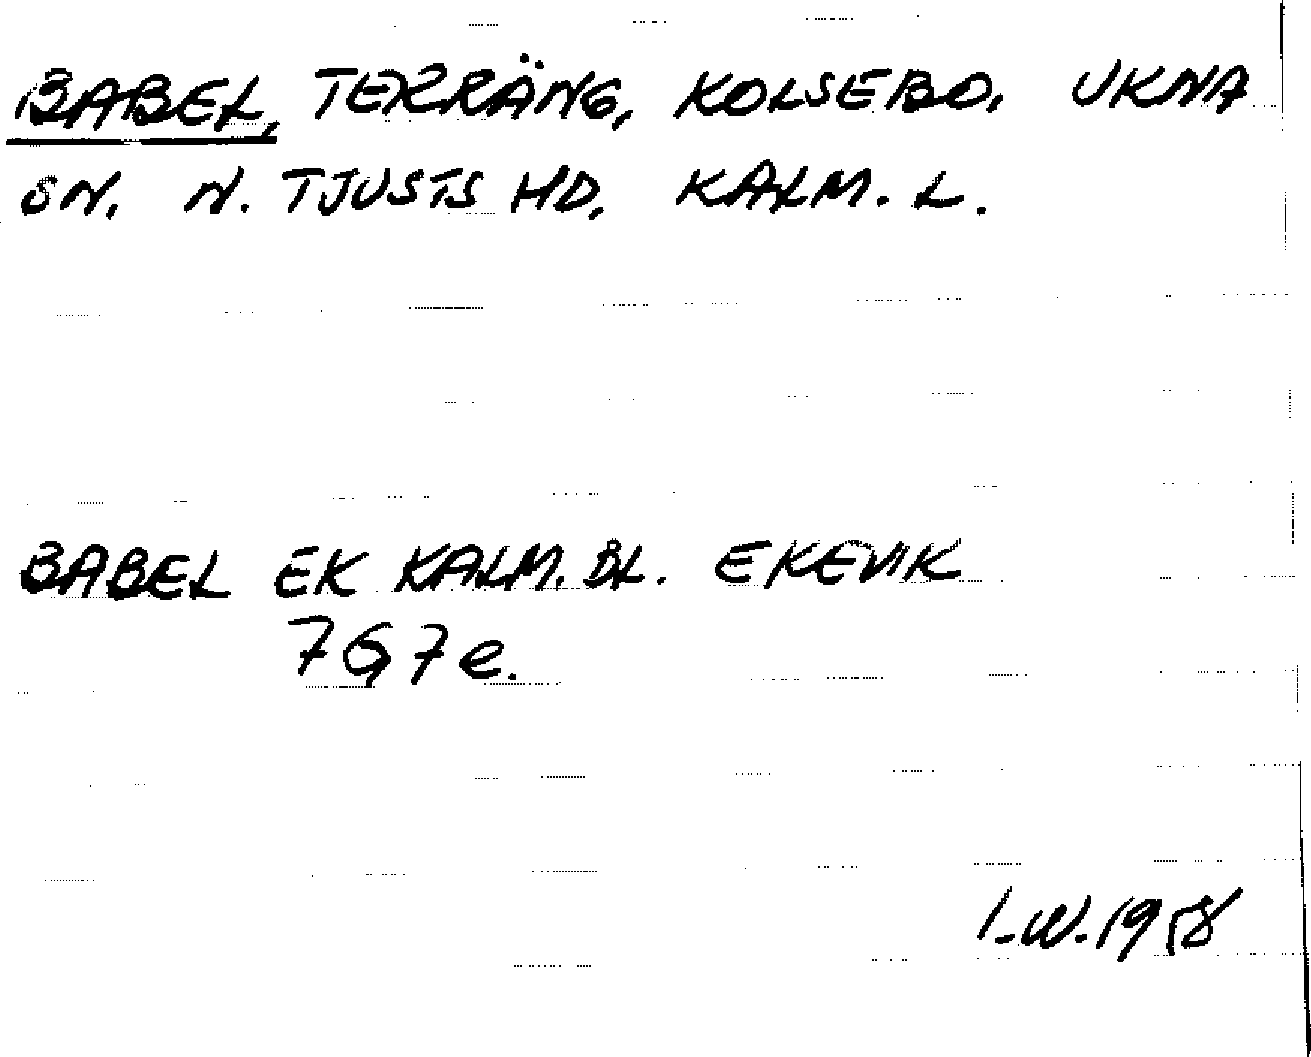 BABEL, TERRÄNG, KOLSEBO, UKNA
SN. N. TJUSTS HD. KALM. L.
BABEL EK KALM. BL. EKEVIK
7G7e.
I.W. 1958